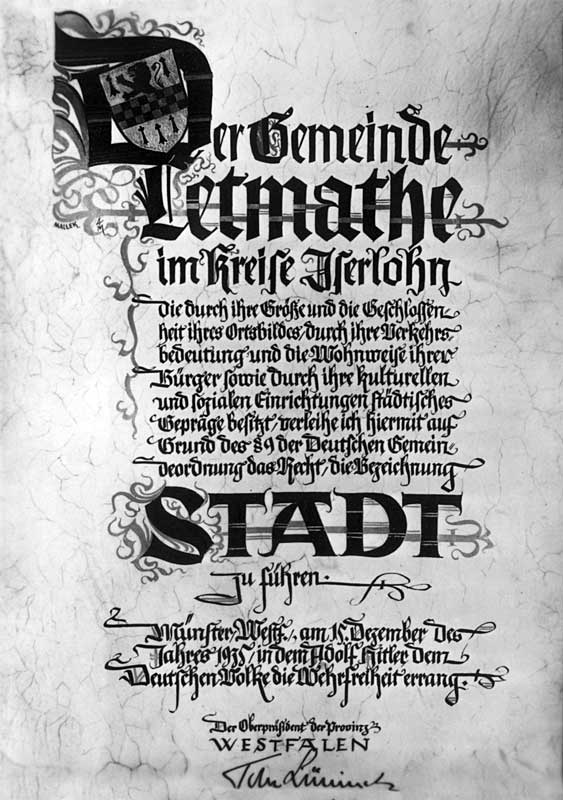 Der Gemeinde
Letmathe
im Kreise Iserlohn
die durch ihre Größe und die Geschlossen-
heit ihres Ortsbildes, durch ihre Verkehrs-
bedeutung und die Wohnweise ihrer
Bürger sowie durch ihre kulturellen
und sozialen Einrichtungen städtisches
Gepräge besitzt, verleihe ich hiermit auf
Grund des §9 der Deutschen Gemein-
deordnung das Recht, die Bezeichnung
STADT
zu führen.
Münster, Westf., am 15. Dezember des
Jahres 1935, in dem Adolf Hitler dem
Deutschen Volke die Wehrfreiheit errang.
Der Oberpräsident der Provinz
WESTFALEN